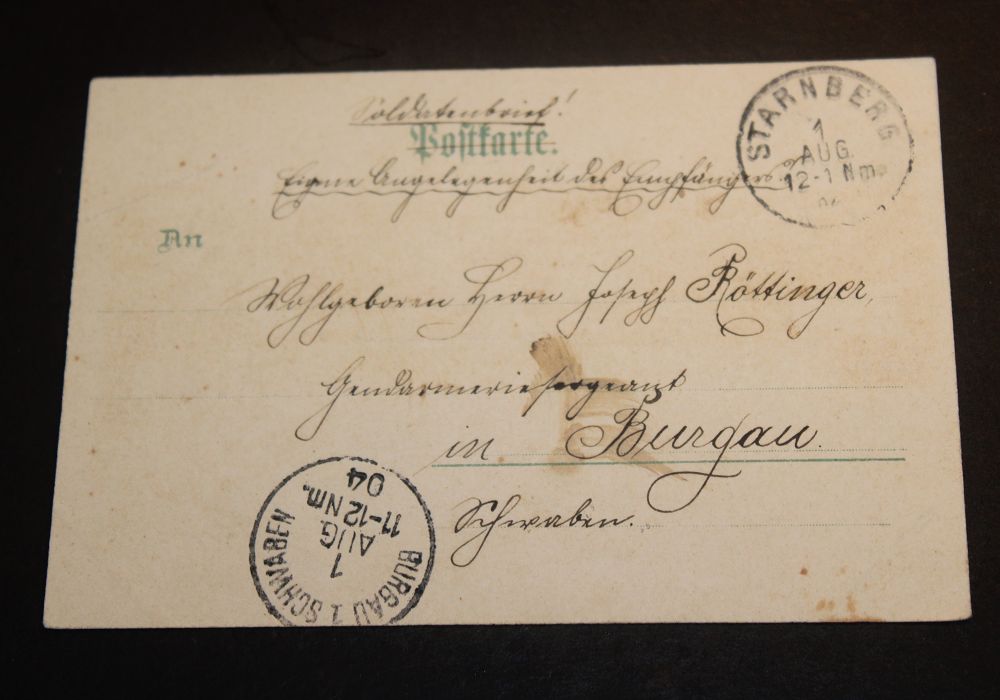 Soldatenbrief!
Postkarte.
Eigne Angelegenheit des Empfängers.
STARNBERG
1
AUG.
12-1 Nm.
04
An
Wohlgeboren Herrn Joseph Röttinger,
Gendarmeriesergeant
in Burgau.
Schwaben.
BURGAU 1 SCHWABEN
1
AUG
11-12 Nm.
04